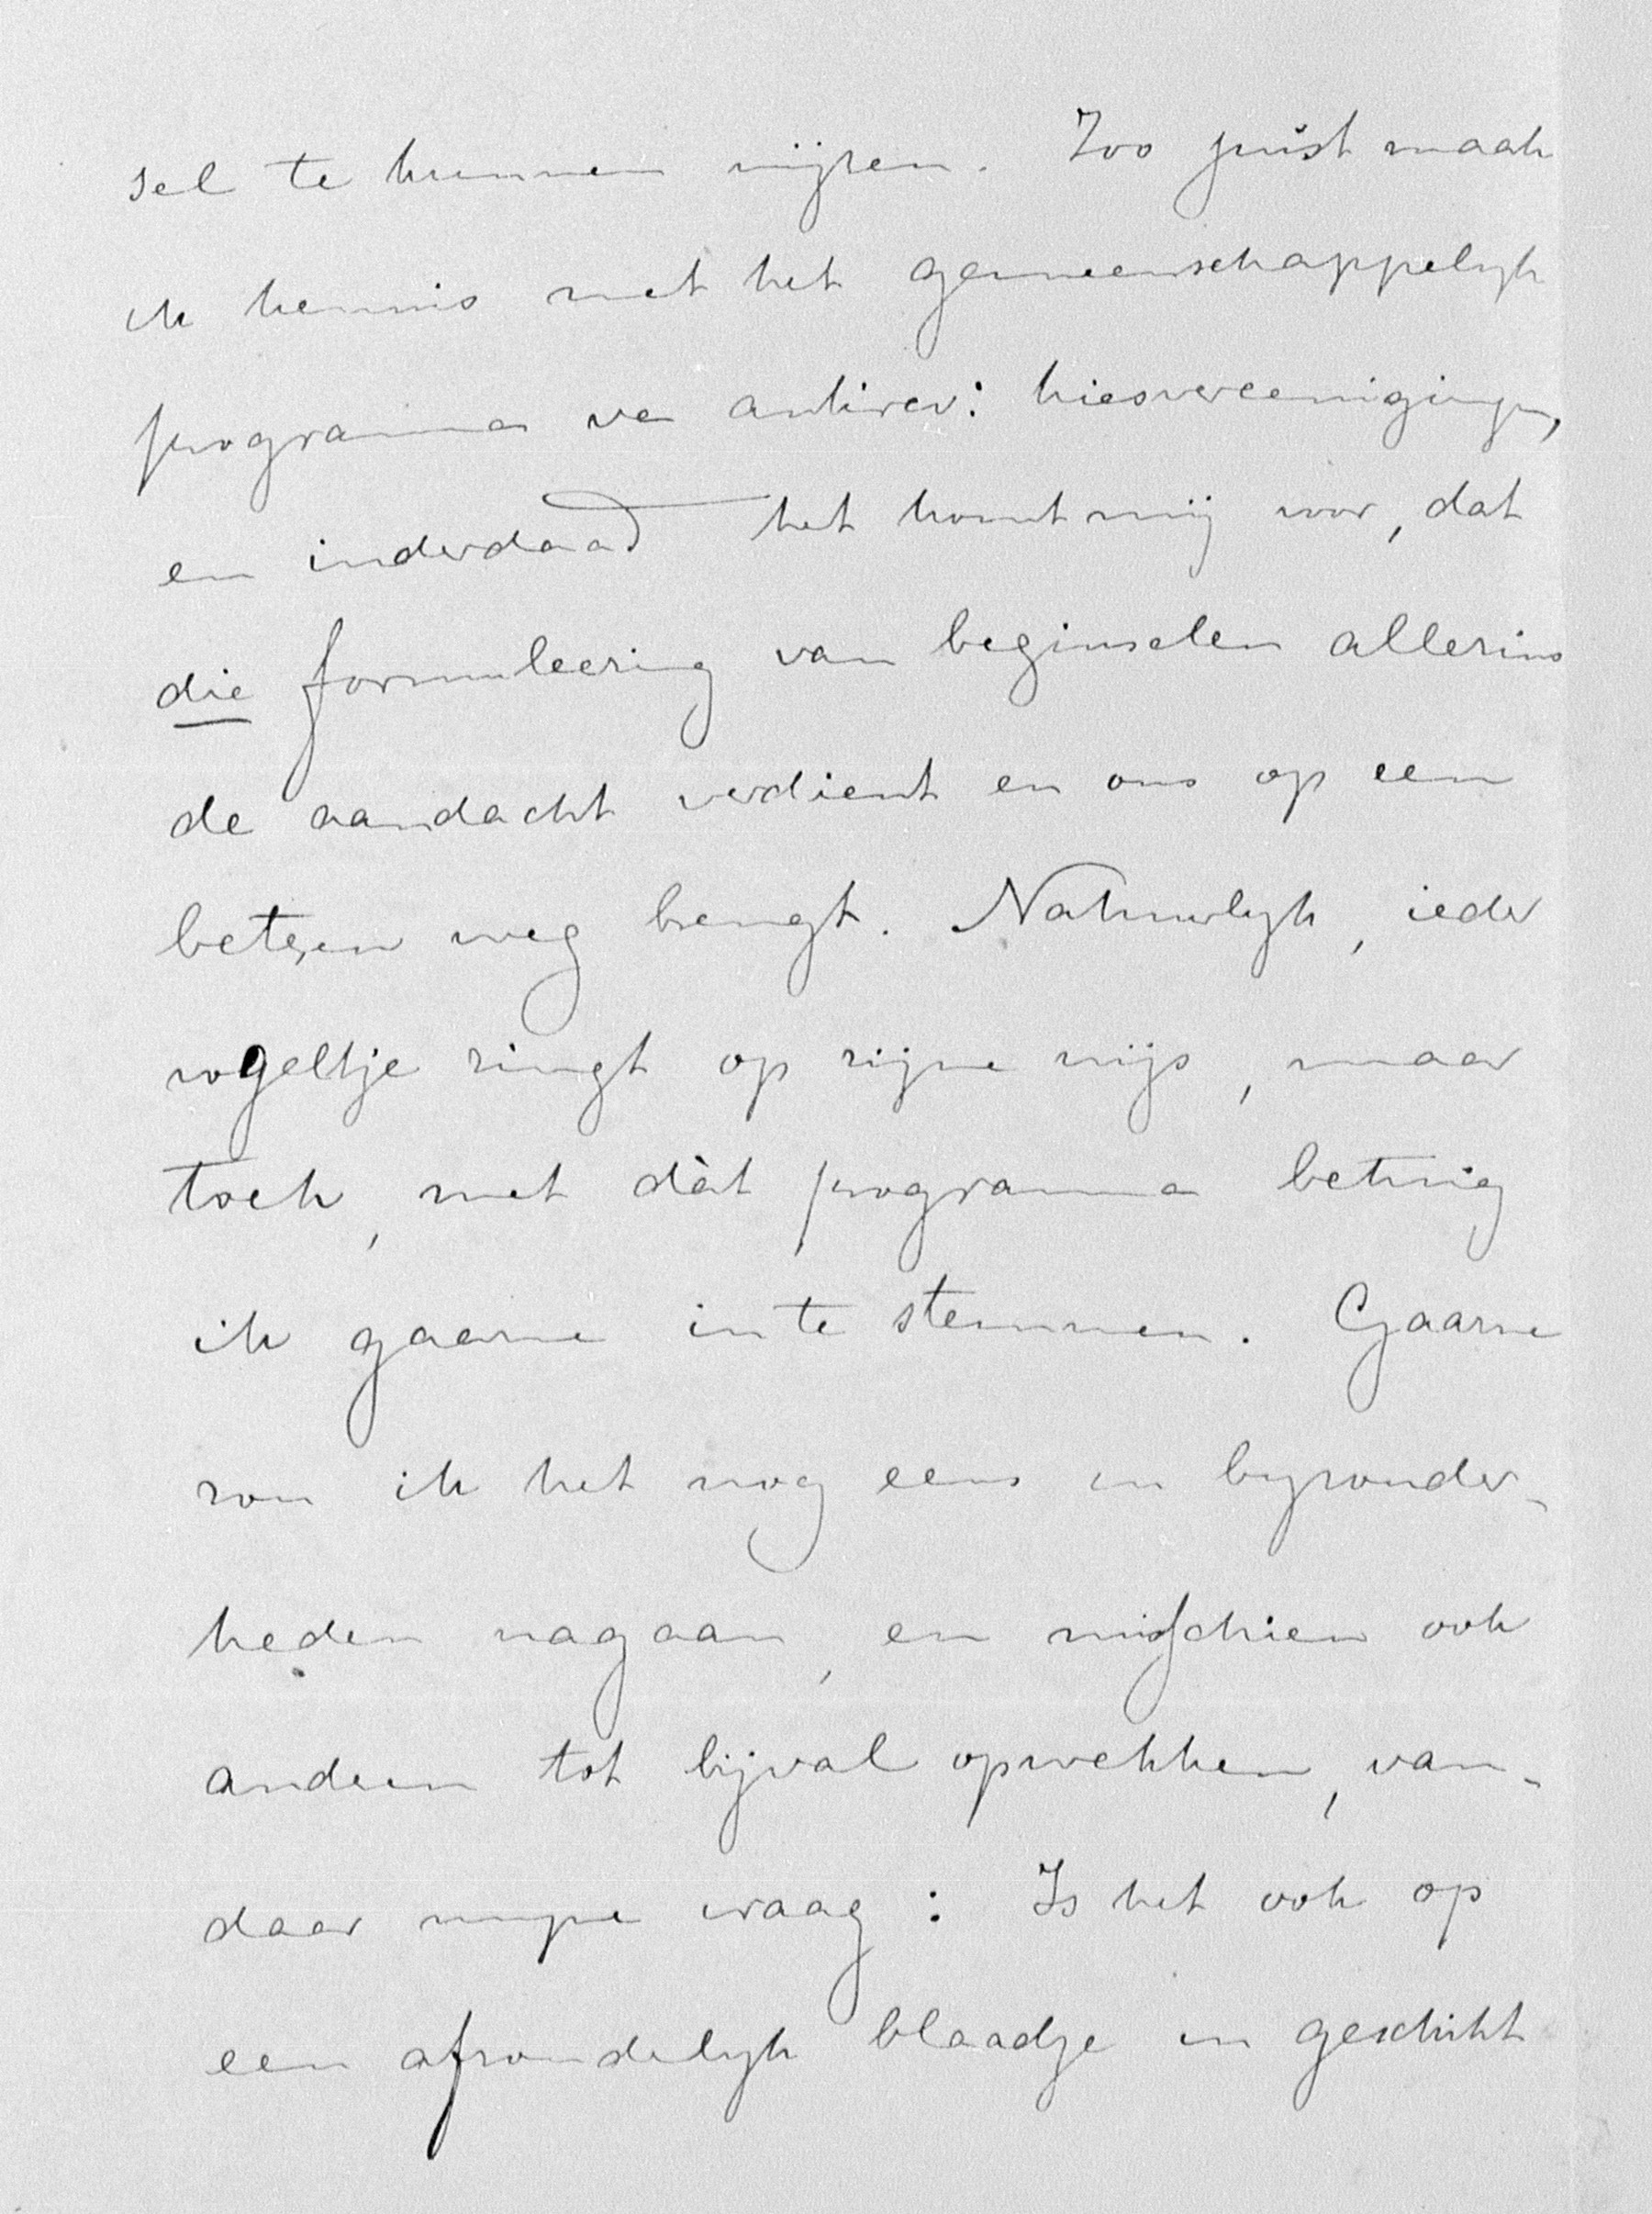 sel te kunnen wijzen. Zoo juist maak
ik kennis met het gemeenschappelijk
programma van antirev: kiesvereenigingen,
en inderdaad het komt mij voor, dat
die formuleering van beginselen allezins
de aandacht verdient en ons op een
beteren weg brengt. Natuurlyk, ieder
vogeltje zingt op zijne wijs, maar
toch, met dàt programma betuig
ik gaarne in te stemmen. Gaarne
zou ik het nog eens in byzonder-
heden nagaan, en misschien ook
anderen tot bijval opwekken, van-
daar mijne vraag: Is het ook op
een afzonderlyk blaadje in geschikt